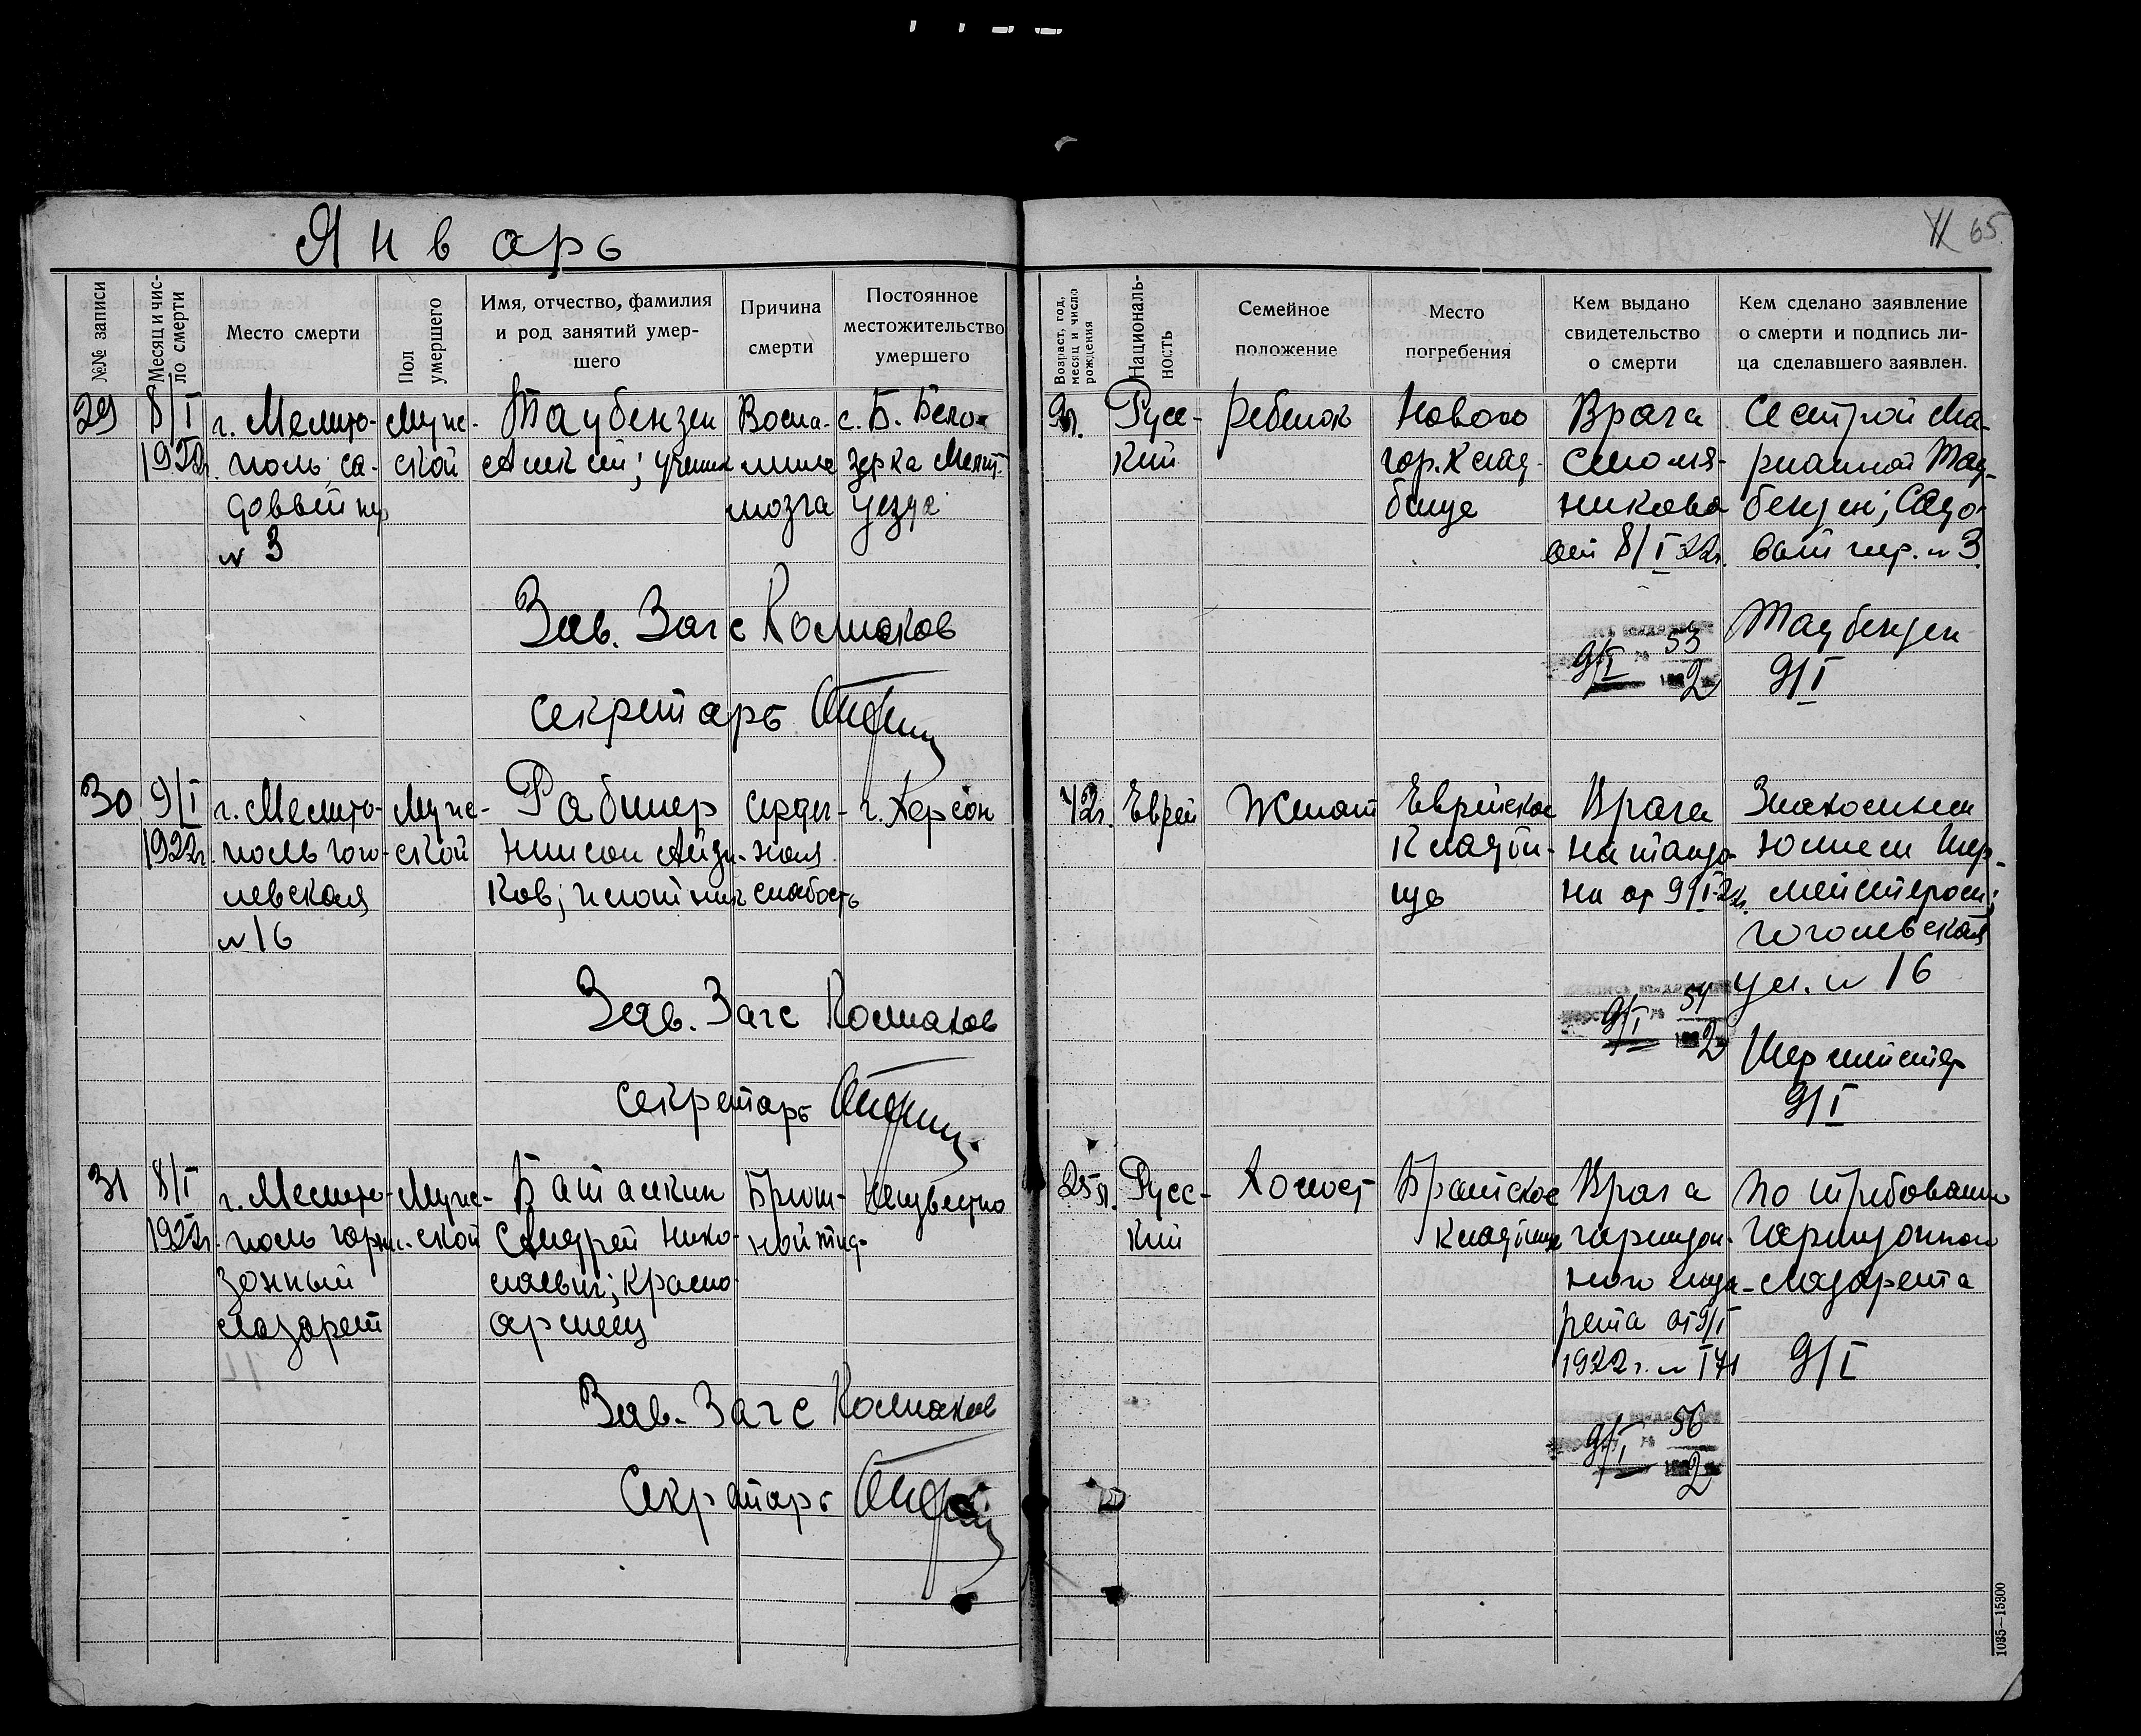 Январь
65
№№ записи
Месяц и чис-
ло смерти
Место смерти
Пол
умершего
Имя, отчество, фамилия
и род занятий умер-
шего
Причина
смерти
Постоянное
местожительство
умершего
Возраст, год,
месяц и число
рождения
Националь-
ность
Семейное
положение
Место
погребения
Кем выдано
свидетельство
о смерти
Кем сделано заявление
о смерти и подпись ли-
ца сделавшего заявлен.
29
8/I
1922г.
г. Мелито-
поль; са-
довый пер
№ 3
Мужс-
ской
Таубензен
ученик
Воспа-
ление
мозга
с. Б. Бело-
зерка Мелит.
уезда
9л.
Русс-
кий
ребенок
Новое
гор. клад-
бище
Врача
никова
от 8/I 22г.
Сестрой Ма-
рианной Тау-
бензен; Садо-
вый пер. № 3
Зав. Загс Колпаков
Секретарь
9/I 53
2
Таубензен
9/I
30
9/I
1922г.
г. Мелито-
поль Гого-
левская
№ 16
Мужс-
ской
Рабинер
Нисон Айзи-
ков; плотник
сердеч-
ная
слабость
г. Херсон
42г.
Еврей
Женат
Еврейское
Кладби-
ще
Врача
Натанзо-
на от 9/I-22г.
Знакомым
Шер-
мейстером;
Гоголевская
ул. № 16
Зав. Загс Колпаков
Секретарь
9/I 54
2
Шермейстер
9/I
31
8/I
1922г.
г. Мелито-
поль гарни-
зонный
лазарет
Мужс-
ской
Баталкин
Андрей Нико-
лаевич; красно-
армеец
Брюш-
ной тиф
Неизвестно
25л.
Русс-
кий
Холост
Братское
Кладбище
Врача
гарнизон-
ного лаза-
рета от 9/I
1922г. № 171
По требованию
гарнизонного
лазарета
9/I
Зав. Загс Колпаков
Секретарь
9/I 56
2
1035—15300